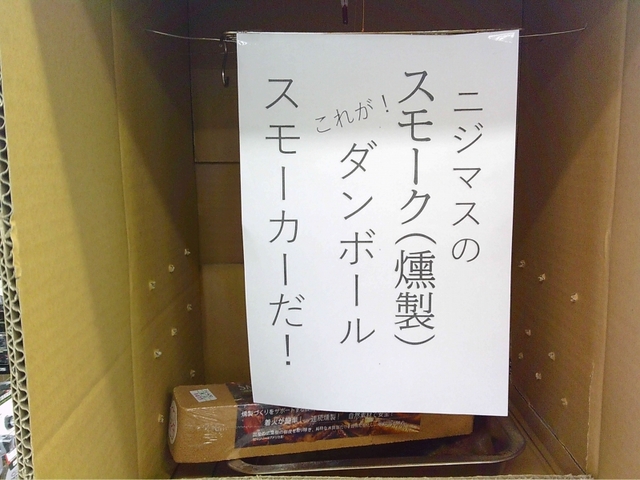 ニジマスの
スモーク(燻製)
これが!
ダンボール
スモーカーだ!
燻製づくりをサポート